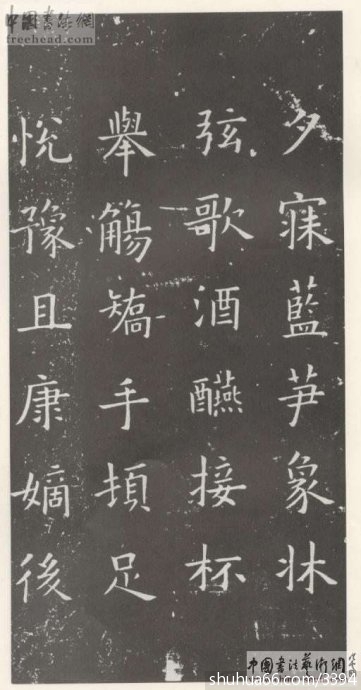 中國書法網
freehead.com
夕寐藍笋象牀
弦歌酒醼接杯
舉觴矯手頓足
悅豫且康嫡後
中國書法藝術網
shuhua66.com/3394